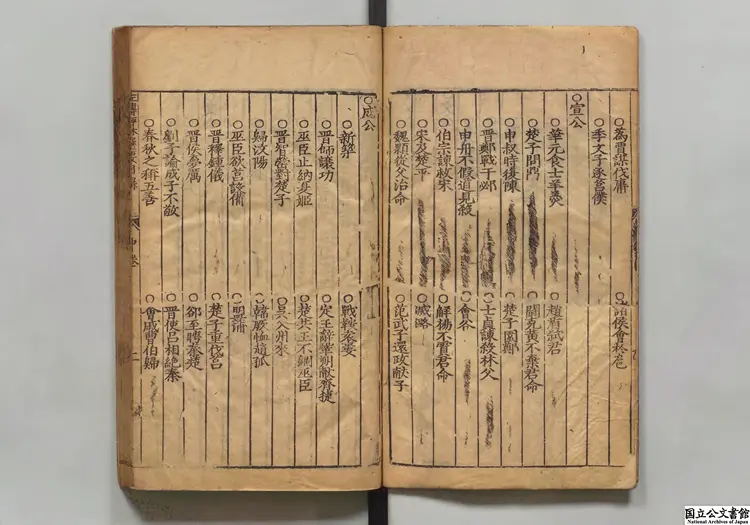 ○諸侯會於扈
○季文子逐莒僕
○宣公
○華元食士羊羹 ○趙盾弑君
○楚子問鼎 ○鬭克黃不棄君命
○申叔時復陳 ○楚子圍鄭
○晉鄭戰于邲 ○士貞諫殺林父
○申舟不假道見殺 ○會谷
○伯宗諫救宋 ○解揚不實君命
○宋及楚平
○魏顆從父治命 ○范武子還政獻子
○成公
○新築 ○戰鞍袁婁
○晉師讓功 ○定王辭鞏朔獻齊捷
○巫臣止納夏姬 ○楚共王不錮巫臣
○晉智罃對楚子 ○吳入州來
○歸汶陽 ○韓厥恤趙孤
○巫臣欲莒諮備
○晉釋鍾儀 ○楚子重伐莒
○晉侯夢厲 ○郤至聘秦楚
○劉子論成子不敬 ○晉使呂相絕秦
○春秋之稱五善 ○會戚曹伯歸
国立公文書館
National Archives of Japan